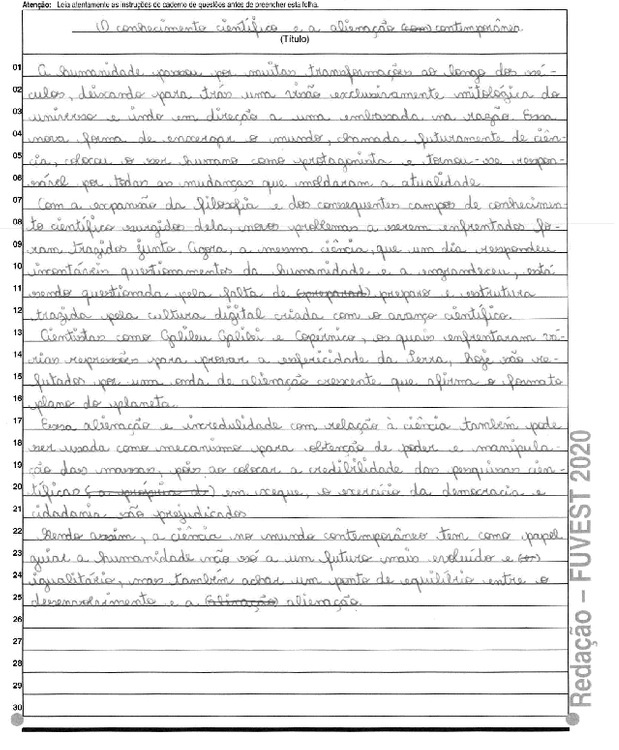 Atenção: Leia atentamente as instruções do caderno de questões antes de preencher esta folha.
O conhecimento científico e a alienação (com) contemporânea
(Título)
01 A humanidade passou por muitas transformações ao longo dos sé-
02 culos, deixando para trás uma visão exclusivamente mitológica do
03 universo e indo em direção a uma embasada na razão. Essa
04 nova forma de enxergar o mundo, chamada futuramente de ciên-
05 cia, colocou o ser humano como protagonista e tornou-se respon-
06 sável por todas as mudanças que moldaram a atualidade.
07 Com a expansão da filosofia e dos consequentes campos de conhecimen-
08 to científico surgidos dela, novos problemas a serem enfrentados fo-
09 ram trazidos junto. Agora, a mesma ciência, que um dia respondeu
10 incontáveis questionamentos da humanidade e a engrandeceu, está
11 sendo questionada pela falta de (preparad) preparo e estrutura
12 trazida pela cultura digital criada com o avanço científico.
13 Cientistas como Galileu Galilei e Copérnico, os quais enfrentaram vá-
14 rias repressões para provar a esfericidade da Terra, hoje são re-
15 futados por uma onda de alienação crescente que afirma o formato
16 plano do planeta.
17 Essa alienação e incredulidade com relação à ciência também pode
18 ser usada como mecanismo para obtenção de poder e manipula-
19 ção das massas, pois ao colocar a credibilidade das pesquisas cien-
20 tíficas em xeque, o exercício da democracia e
21 cidadania são prejudicados.
22 Sendo assim, a ciência no mundo contemporâneo tem como papel
23 guiar a humanidade não só a um futuro mais evoluído e
24 igualitário, mas também achar um ponto de equilíbrio entre o
25 desenvolvimento e a (alinação) alienação.
26
27
28
29
30
Redação – FUVEST 2020